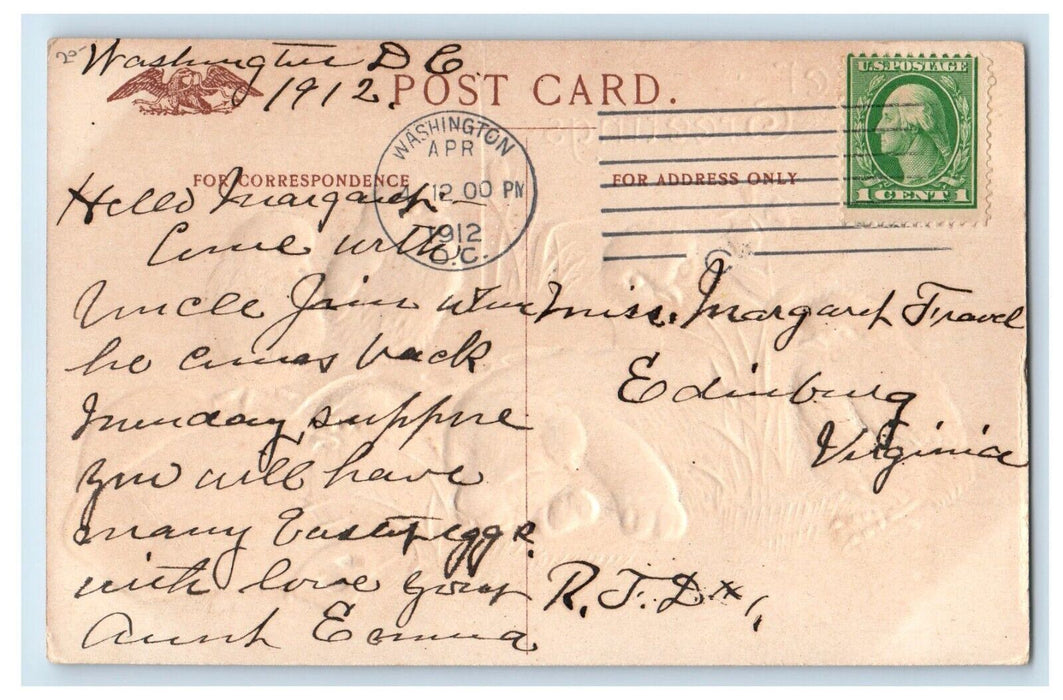 20-
Washington D C
1912.
POST CARD.
WASHINGTON
APR
12.00 PM
1912
D.C.
U.S. POSTAGE
1 CENT 1
FOR CORRESPONDENCE
FOR ADDRESS ONLY
Hello Margaret
Come with
Uncle Jim when
he comes back
Munday suppose
you will have
many Easter eggs.
with love your
Aunt Emma
Miss. Margaret Fravel
Edinburg
Virginia
R. F. D